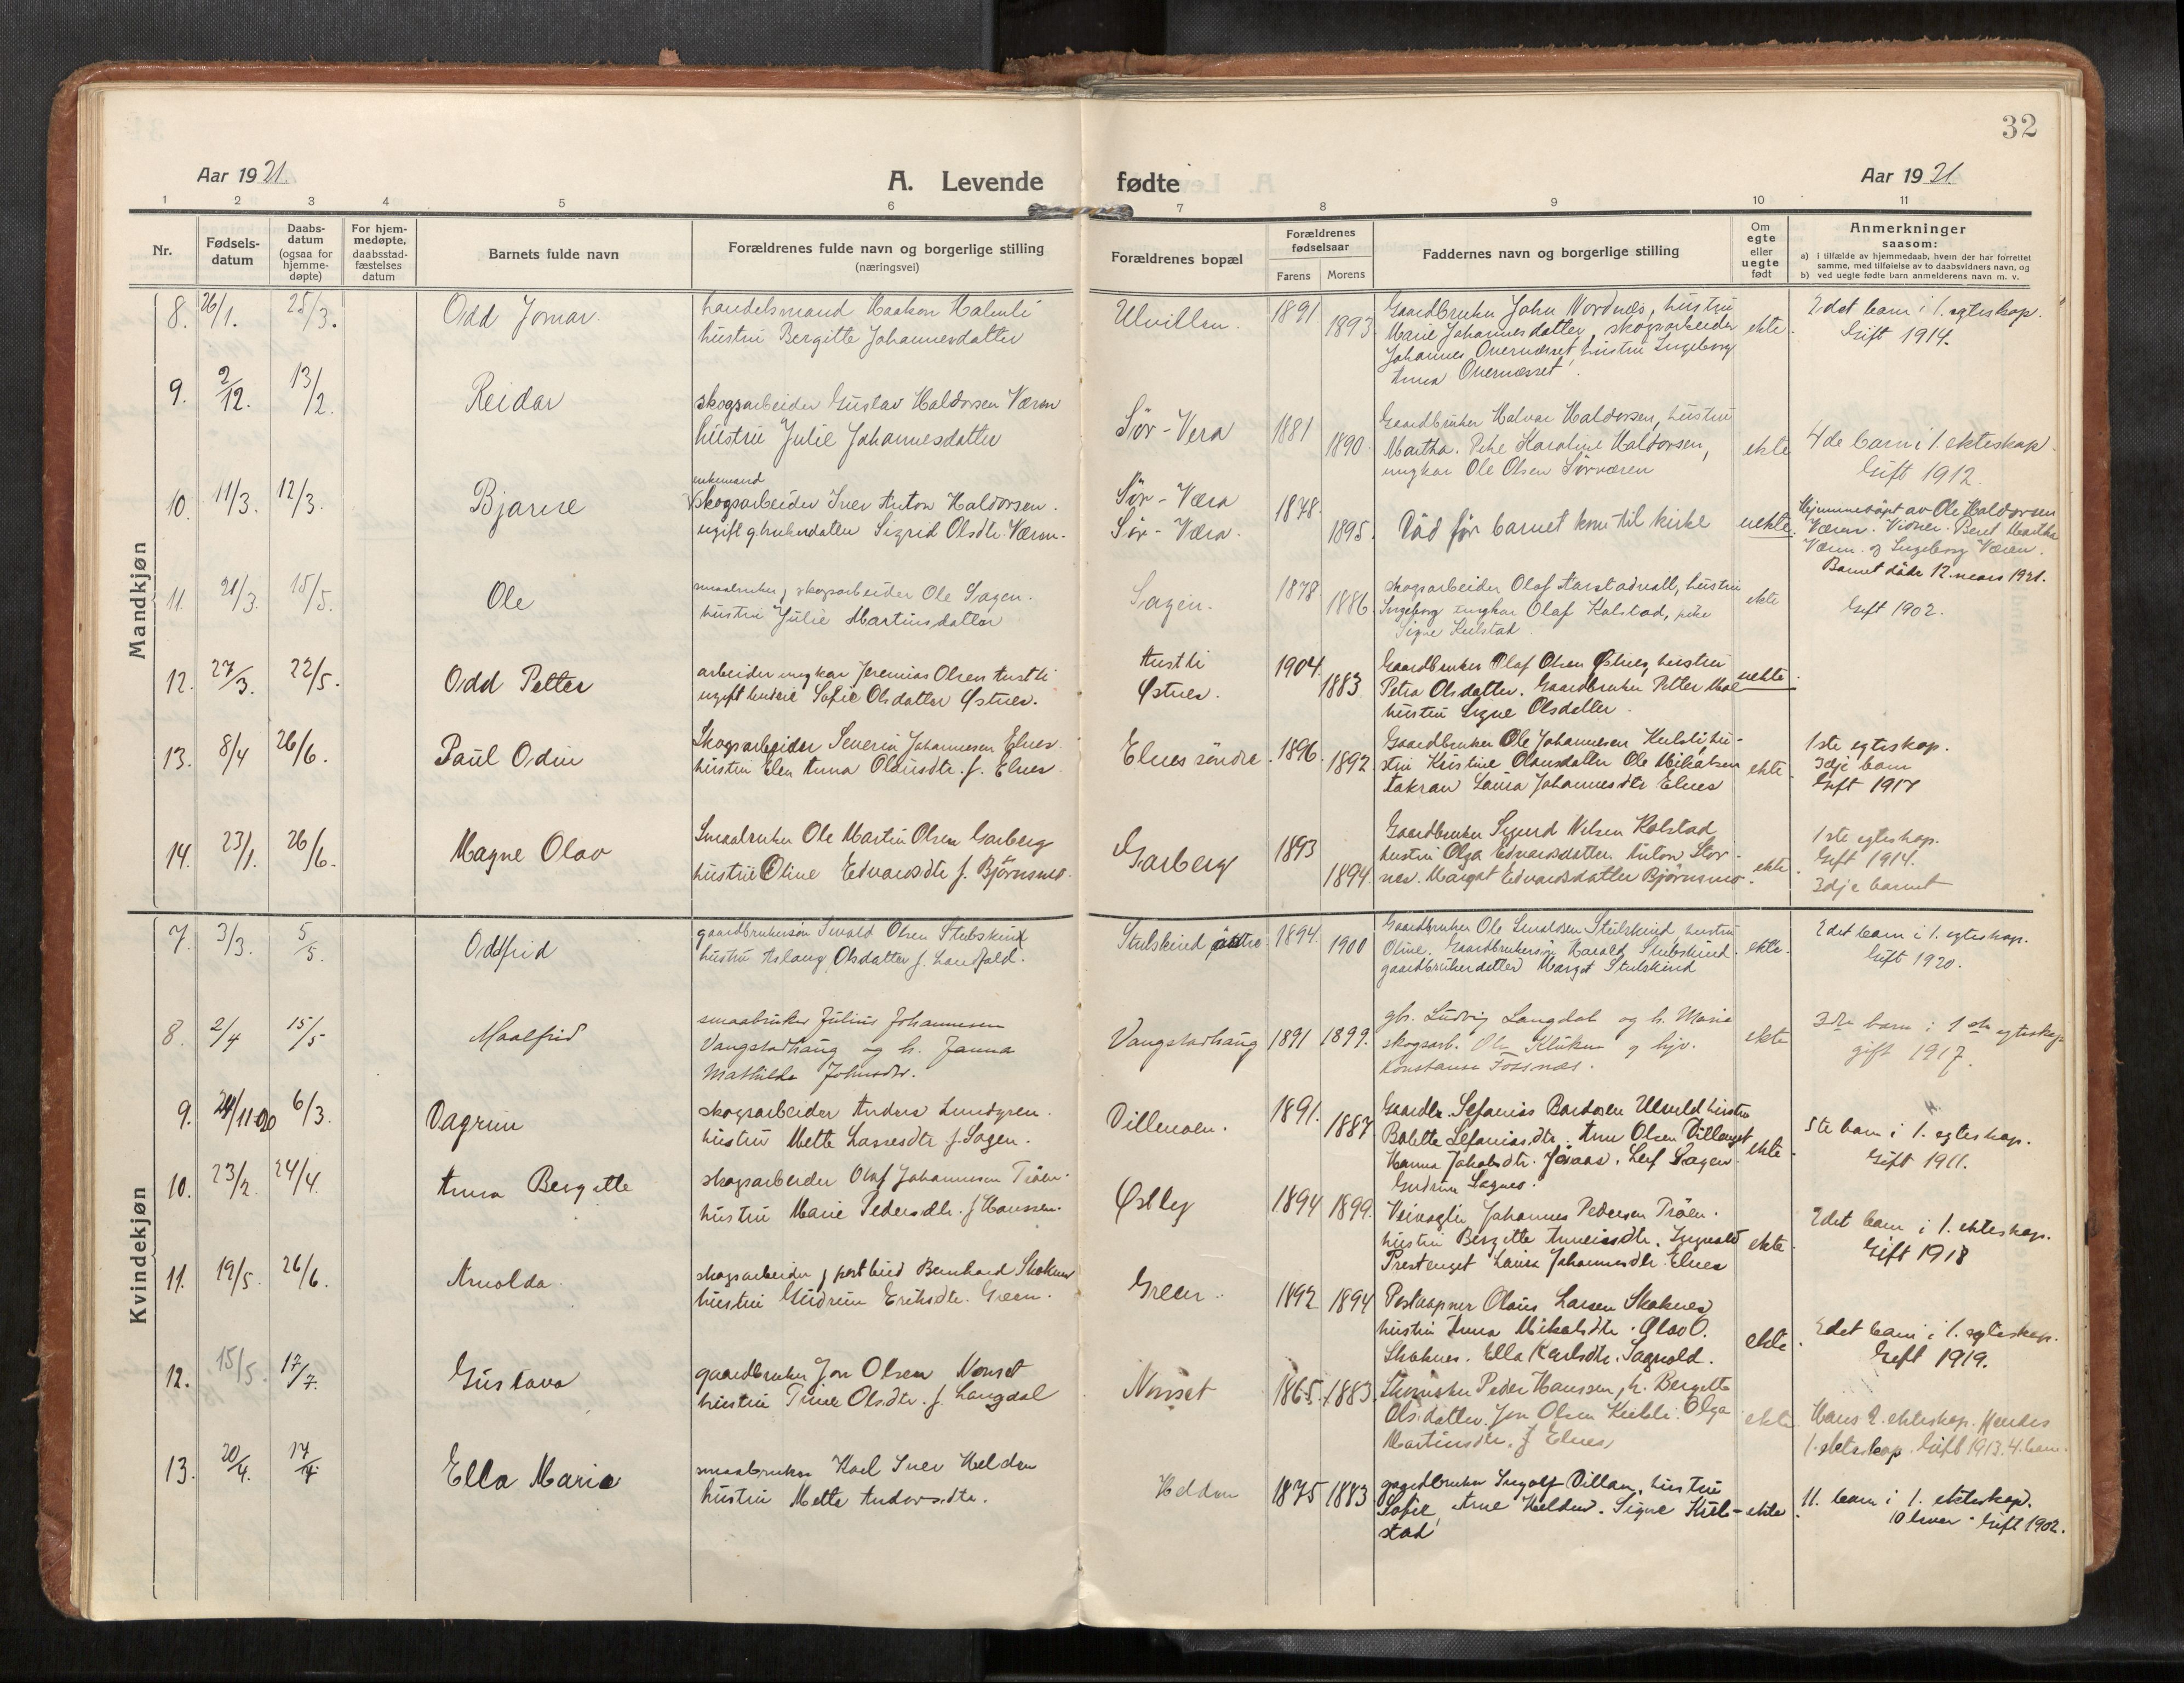 32
Aar 1921.
A. Levende fødte
Aar 1921.
1 2 3 4 5 6 7 8 9 10 11
Nr.
Fødsels-
datum
Daabs-
datum
(ogsaa for
hjemme-
døpte)
For hjem-
medøpte,
daabsstad-
fæstelses
datum
Barnets fulde navn
Forældrenes fulde navn og borgerlige stilling
(næringsvei)
Forældrenes bopæl
Forældrenes
fødselsaar
Farens Morens
Faddernes navn og borgerlige stilling
Om
egte
eller
uegte
født
Anmerkninger
saasom:
a) i tilfælde av hjemmedaab, hvem der har forrettet
samme, med tilføielse av to daabsvidners navn, og
b) ved uegte fødte barn anmelderens navn m. v.
Mandkjøn
8. 26/1. 25/3. Odd Jomar.
handelsmand Haakon Holmli
hustru Bergitte Johannesdatter
Ulvillen. 1891 1893
Gaardbruker John Nordnes, hustru
Marie Johannesdatter, skogsarbeider
Johannes Overnesset, hustru Ingeborg
Anna Overnesset.
ekte.
2det barn i 1. egteskap.
Gift 1914.
9. 2/12. 13/2. Reidar
skogsarbeider Gustav Haldorsen Væren
hustru Julie Johannesdatter
Sør-Vera 1881 1890.
Gaardbruker Halvar Haldorsen, hustru
Martha. Pike Karoline Haldorsen,
ungkar Ole Olsen Sørværen
ekte
4de barn i 1. ekteskap.
Gift 1912.
10. 11/3. 12/3. Bjarne
enkemand
skogsarbeider Iver Anton Haldorsen.
ugift gbrukerdatter Sigrid Olsdtr. Væren.
Sør-Væra
Sør-Væra.
1878. 1895.
Död før barnet kom til kirke
uekte.
Hjemmedøpt av Ole Haldorsen
Væren. Vidner. Beret Martha
Væren og Ingeborg Væren.
Barnet döde 12. mars 1921.
11. 21/3. 15/5. Ole
smaabruker, skogsarbeider Ole Sagen.
hustru Julie Martinsdatter
Sagen. 1878. 1886.
skogsarbeider Olaf Aarstadvall, hustru
Ingeborg ungkar Olaf Kolstad, pike
Signe Kulstad.
ekte
Gift 1902.
12. 27/3. 22/5. Odd Petter
arbeider ungkar Jeremias Olsen Austli
ugift budeie Sofie Olsdatter Østnes.
Austli
Østnes.
1904. 1883
Gaardbruker Olaf Olsen Østnes, hustru
Petra Olsdatter. Gaardbruker Petter Moe
hustru Signe Olsdatter.
uekte.
13. 8/4 26/6. Paul Odin
Skogsarbeider Severin Johannesen Elnes
hustru Elen Anna Olausdtr. f. Elnes.
Elnes söndre. 1896. 1892
Gaardbruker Ole Johannesen Kulsli, hu-
stru Kristine Olausdatter Ole Mikalsen
Aakran Laura Johannesdtr Elnes
ekte.
1ste egteskap.
3dje barn
Gift 1917
14. 23/1. 26/6. Magne Olav
Smaabruker Ole Martin Olsen Garberg
hustru Oline Edvardsdtr f. Björnsmo.
Garberg 1893 1894.
Gaardbruker Sigurd Nilsen Kolstad
hustru Olga Edvardsdatter. Anton Stor-
nes. Margot Edvardsdatter Björnsmo.
ekte.
1ste egteskap.
Gift 1914.
3dje barnet
Kvindekjøn
7. 3/3. 5/5. Oddfrid
gaardbrukersøn Sevald Olsen Stulskind
hustru Aslaug Olsdatter f. Landfald.
Stulskind östre 1894. 1900
Gaardbruker Ole Sevaldsen Stulskind hustru
Oline. Gaardbrukersøn Harald Stulskind.
gaardbrukerdatter Margot Stulskind
ekte.
2det barn i 1. egteskap.
Gift 1920.
8. 2/4 15/5 Maalfrid
smaabruker Julius Johannesen
Vangstadhaug og h. Janna
Mathilde Johnsdtr.
Vangstadhaug 1891 1899.
gbr. Ludvig Langdal og h. Maria
skogsarb. Ole Kluken og hjv.
Konstanse Fossnes.
ekte
3die barn i 1ste egteskap
gift 1917.
9. 24/11-020 6/3. Dagrun
skogsarbeider Anders Lundgren.
hustru Mette Larsesdtr f. Sagen.
Villenoen. 1891. 1887
Gaardbr. Sefanias Bardosen Ulvild hustru
Bolette Sefaniasdtr. Arne Olsen Villenget
Hanna Jakobsdtr. Jövaas. Leif Sagen.
Gudrun Sagnes.
ekte.
5te barn i 1. egteskap.
Gift 1911.
10. 23/2. 24/4. Anna Bergitte
skogsarbeider Olaf Johannesen Tröen.
hustru Marie Pedersdtr. f. Hanssen.
Østby 1894 1899.
Veivogter Johannes Pedersen Tröen.
hustru Bergitte Arneiasdtr. Ingvald
Prestenget Laura Johannesdtr. Elnes
ekte.
2det barn i 1. ekteskap.
Gift 1918
11. 19/5. 26/6. Arnolda.
skogsarbeider, postbud Bernhard Skaknes
hustru Gudrun Eriksdtr. Green.
Green. 1892 1894
Postaapner Olaus Larsen Skaknes
hustru Anna Mikalsdtr. Olav O.
Skaknes. Ella Karlsdtr. Sagvold.
ekte.
2det barn i 1. egteskap.
Gift 1919.
12. 15/5. 17/7. Gustava
gaardbruker Jon Olsen Nonset
hustru Trine Olsdtr. f. Langdal
Nonset 1865. 1883.
Peder Hanssen, h. Bergitte
Olsdatter. Jon Olsen Kulsli. Olga
Martinsdtr. f. Elnes,
ekte
Hans 2. ekteskap. Hendes
1. ekteskap. Gift 1913. 4. barn.
13. 20/4. 17/7. Ella Marie
smaabruker Karl Iver Helden
hustru Mette Andersdtr.
Helden 1875 1883
gaardbruker Ingolf Villan, hustru
Sofie, Arne Helden. Signe Kul-
stad
ekte.
11. barn i 1. ekteskap.
10 lever. Gift 1902.